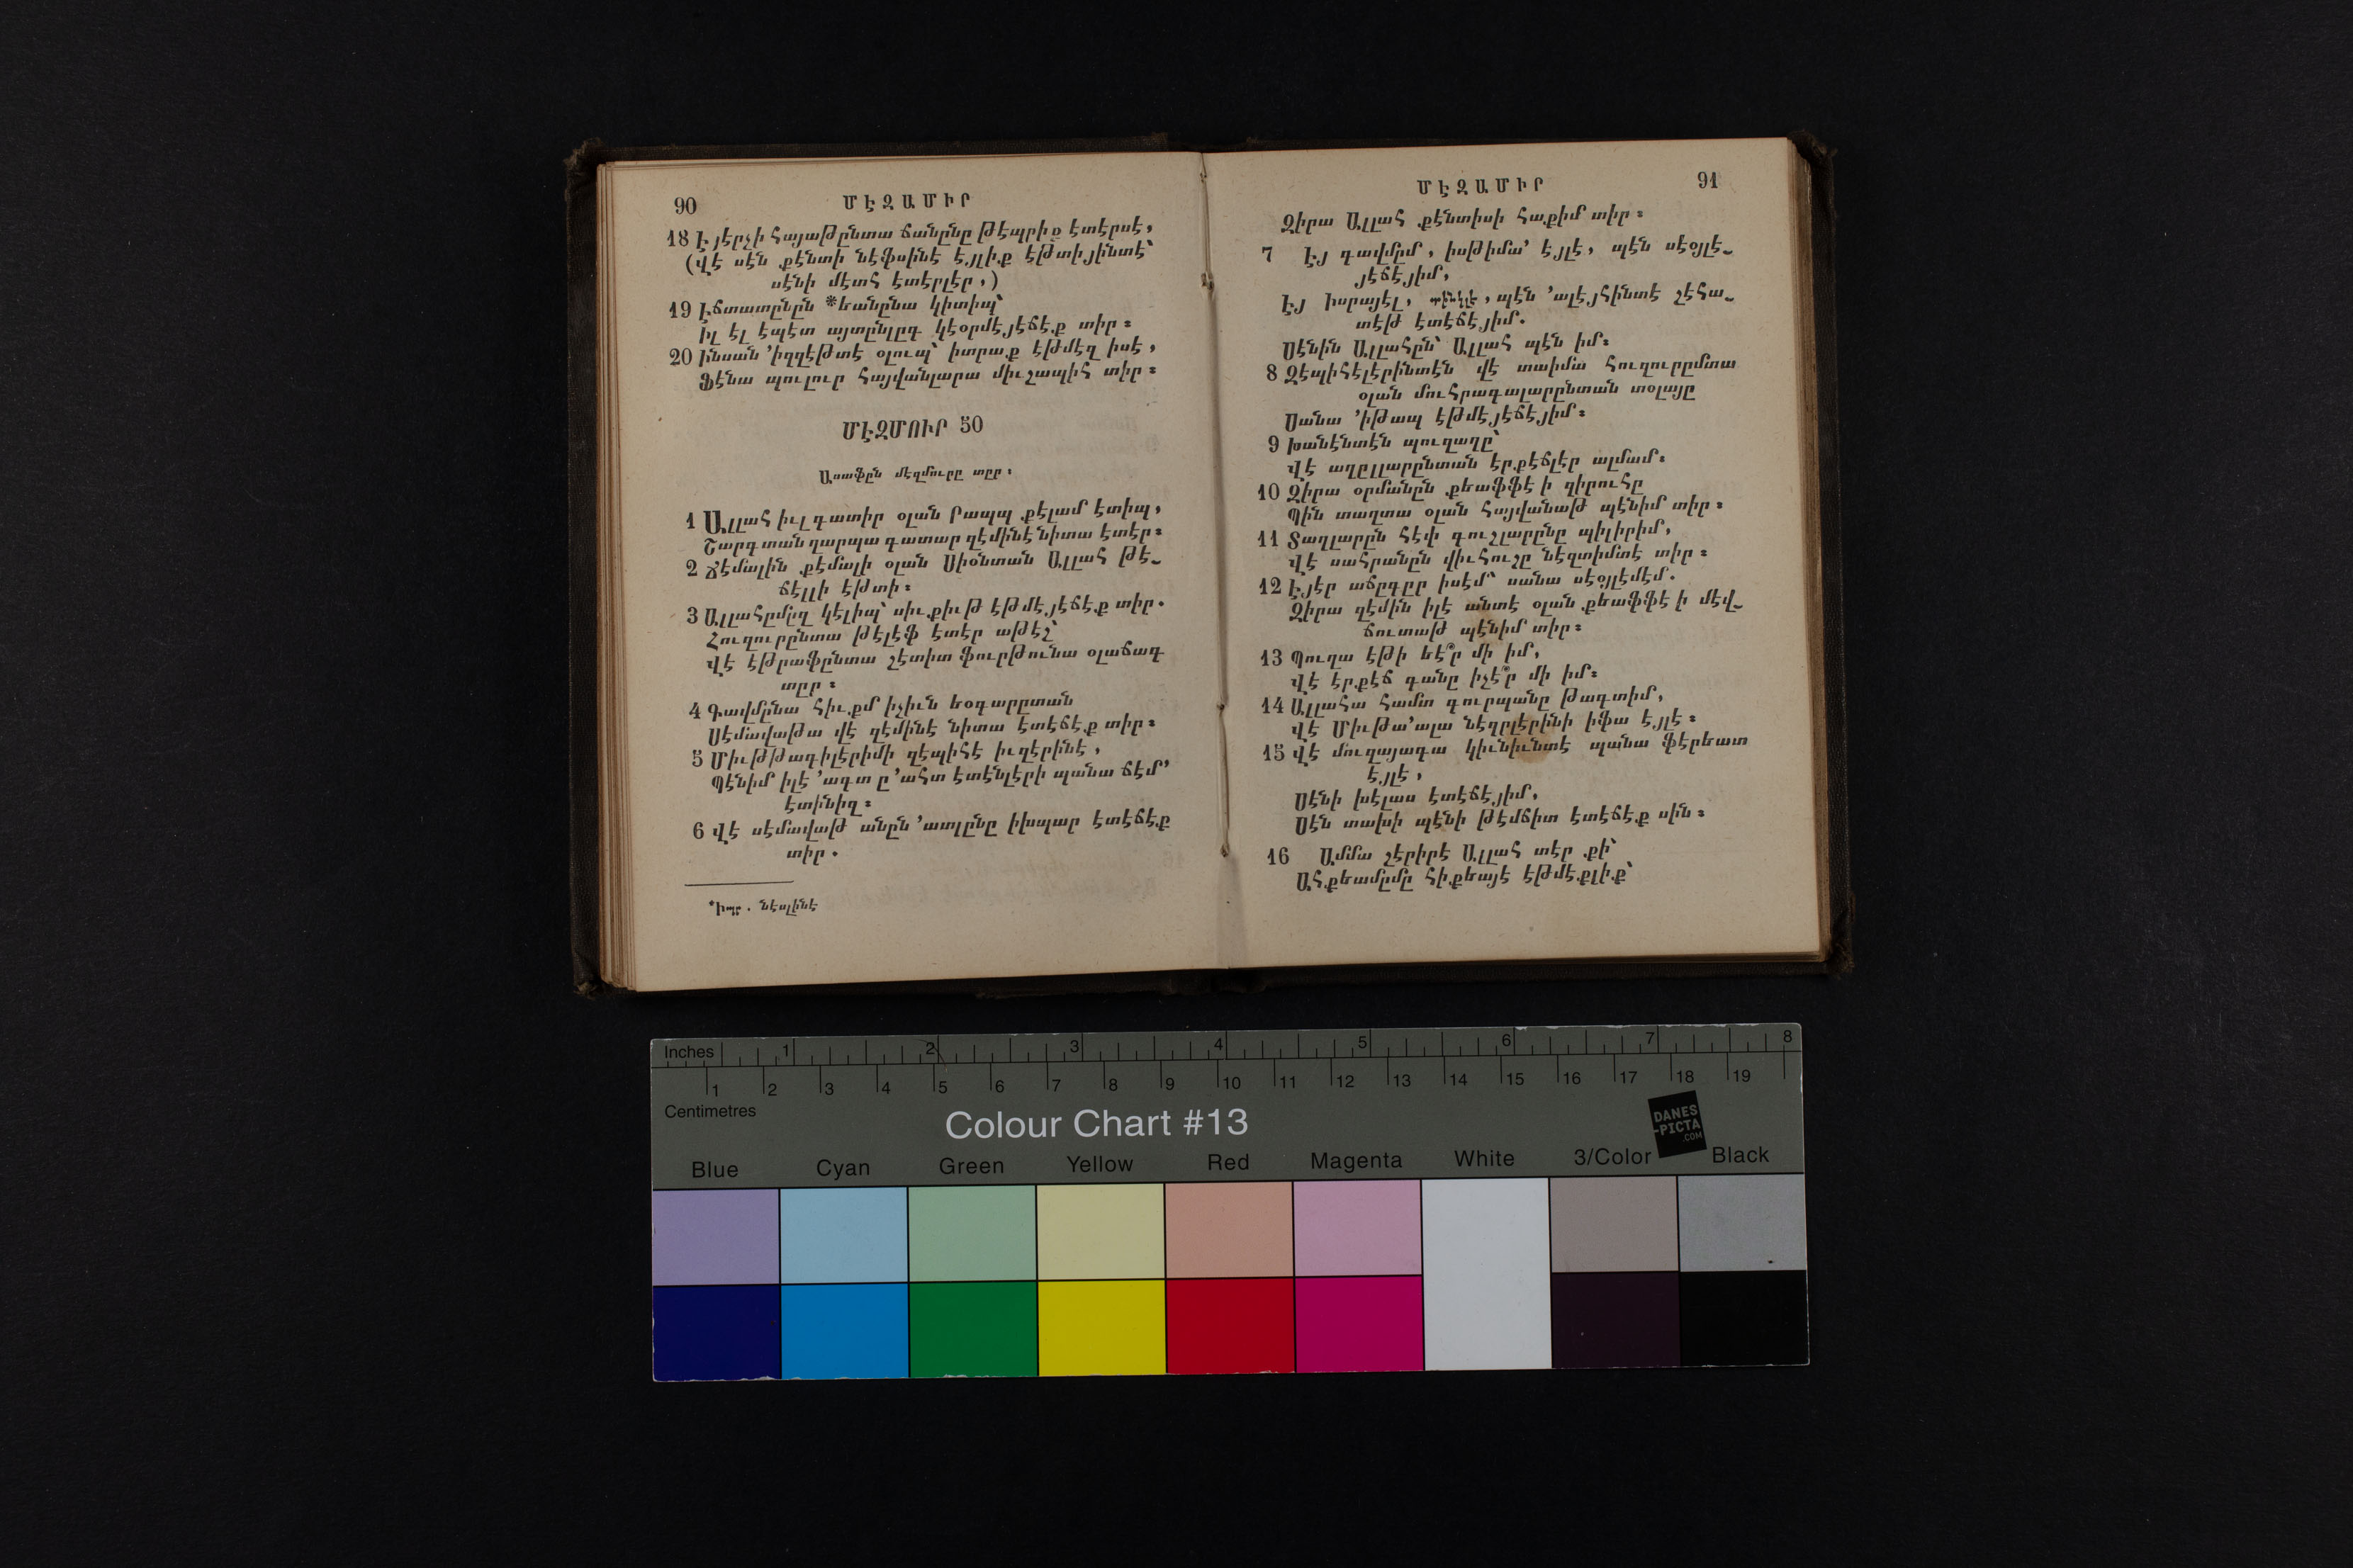 90 ՄԷԶԱՄԻՐ
18 Էյէրչի հայաթընտա ճանընը թէպրիք էտէրսէ,
(Վէ սէն քէնտի նէֆսինէ էյլիք էթտիյինտէ՝
սէնի մէտհ էտէրլէր,)
19 Էճտատընըն *եանընա կիտիպ՝
Իլ էլ էպէտ այտընլըգ կէօրմէյէճէք տիր։
20 Ինսան ՚իզզէթտէ օլուպ՝ իտրաք էթմէզ իսէ,
Ֆէնա պուլուր հայվանլարա միւշապիհ տիր։
ՄԷԶՄՈՒՐ 50
Ասաֆըն մէզմուրը տըր.
1 Ալլահ իւլ գատիր օլան Րապպ քէլամ էտիպ,
Շարգտան ղարպա գատար զէմինէ նիտա էտէր։
2 Ճէմալին քէմալի օլան Սիօնտան Ալլահ թէ-
ճէլլի էթտի։
3 Ալլահըմըզ կէլիպ՝ սիւքիւթ էթմէյէճէք տիր.
Հուզուրընտա թէլէֆ էտէր աթէշ՝
Վէ էթրաֆընտա շէտիտ ֆուրթունա օլաճագ
տըր։
4 Գավմընա հիւքմ իչիւն եօգարըտան
Սէմավաթա վէ զէմինէ նիտա էտէճէք տիր։
5 Միւթթագիլէրիմի զէպիհէ իւզէրինէ,
Պէնիմ իլէ ՚ագտ ը ՚ահտ էտէնլէրի պանա ճէմ՚
էտինիզ։
6 Վէ սէմավաթ անըն ՚ատլընը իխպար էտէճէք
տիր.
*Իպր. նէսլինէ
ՄԷԶԱՄԻՐ 91
Զիրա Ալլահ քէնտիսի հաքիմ տիր։
7 Էյ գավմըմ, իսթիմա՚ էյլէ, պէն սէօյլէ-
յէճէյիմ,
Էյ Իսրայէլ, տինլէ, պէն ՚ալէյհինտէ շէհա-
տէթ էտէճէյիմ.
Սէնին Ալլահըն՝ Ալլահ պէն իմ։
8 Զէպիհէլէրինտէն վէ տաիմա հուզուրըմտա
օլան մուհրագալարընտան տօլայը
Սանա ՚իթապ էթմէյէճէյիմ։
9 Խանէնտէն պուզաղը՝
Վէ աղըլլարընտան էրքէճլէր ալմամ։
10 Զիրա օրմանըն քեաֆֆէ ի զիրուհը
Պին տաղտա օլան հայվանաթ պէնիմ տիր։
11 Տաղլարըն հէփ գուշլարընը պիլիրիմ,
Վէ սահրանըն վիւհուշը նէզտիմտէ տիր։
12 Էյէր աճըգըր իսէմ՝ սանա սէօյլէմէմ.
Զիրա զէմին իլէ անտէ օլան քեաֆֆէ ի մէվ-
ճուտաթ պէնիմ տիր։
13 Պուղա էթի եէ՞ր մի իմ,
Վէ էրքէճ գանը իչէ՞ր մի իմ։
14 Ալլահա համտ գուրպանը թագտիմ,
Վէ Միւթա՚ալա նէզրլէրինի իֆա էյլէ։
15 Վէ մուզայագա կիւնիւնտէ պանա ֆէրեատ
էյլէ,
Սէնի խէլաս էտէճէյիմ,
Սէն տախի պէնի թէմճիտ էտէճէք սին։
16 Ամմա շէրիրէ Ալլահ տէր քի՝
Ահքեամըմը հիքեայէ էթմէքլիք՝
Inches 1 2 3 4 5 6 7 8
1 2 3 4 5 6 7 8 9 10 11 12 13 14 15 16 17 18 19
Centimetres
Colour Chart #13
DANES
-PICTA
.COM
Blue Cyan Green Yellow Red Magenta White 3/Color Black